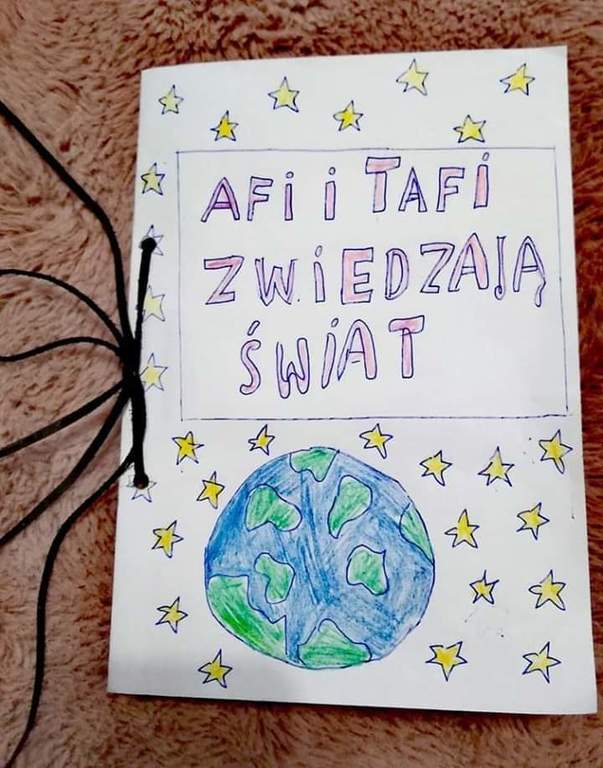 AFi i TAFi
ZWiEDZAJĄ
ŚWiAT